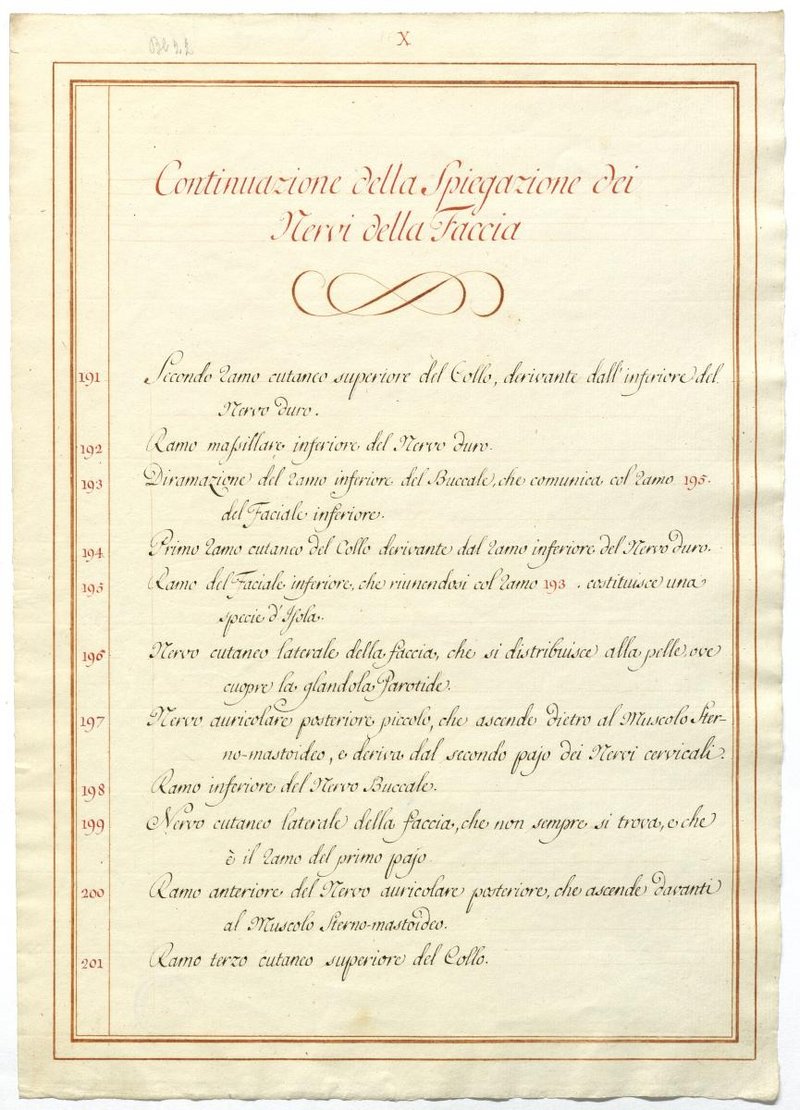 X
Continuazione della Spiegazione dei
Nervi della Faccia
191 Secondo ramo cutaneo superiore del Collo, derivante dall'inferiore del
Nervo duro.
192 Ramo maſsillare inferiore del Nervo duro.
193 Diramazione del ramo inferiore del Buccale, che comunica col ramo 195.
del Faciale inferiore.
194 Primo ramo cutaneo del Collo derivante dal ramo inferiore del Nervo duro.
195 Ramo del Faciale inferiore, che riunendosi col ramo 193. costituisce una
specie d'Isola.
196 Nervo cutaneo laterale della faccia, che si distribuisce alla pelle, ove
cuopre la glandola Parotide.
197 Nervo auricolare posteriore piccolo, che ascende dietro al Muscolo Ster-
no-mastoideo, e deriva dal secondo pajo dei Nervi cervicali.
198 Ramo inferiore del Nervo Buccale.
199 Nervo cutaneo laterale della faccia, che non sempre si trova, e che
è il ramo del primo pajo
200 Ramo anteriore del Nervo auricolare posteriore, che ascende davanti
al Muscolo Sterno-mastoideo.
201 Ramo terzo cutaneo superiore del Collo.